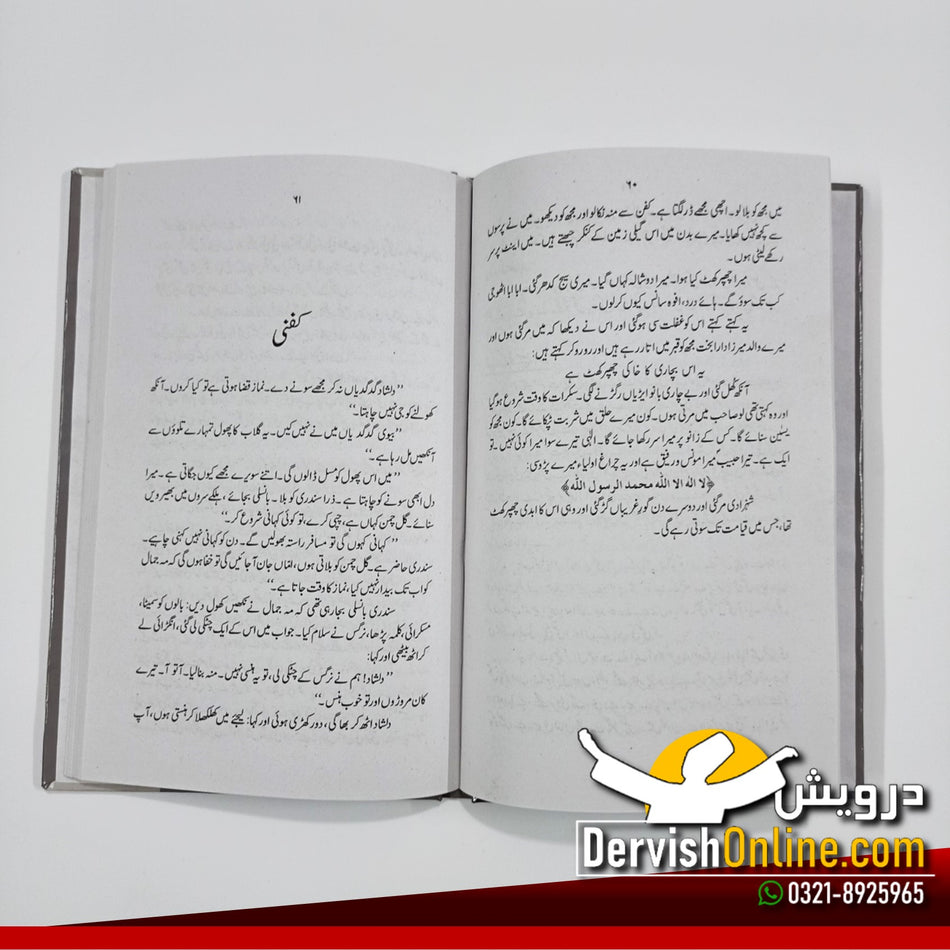 ۶۰
میں مجھ کو بلا لو۔ اچھی مجھے ڈر لگتا ہے۔ کفن سے منہ نکالو اور مجھ کو دیکھو۔ میں نے پرسوں
سے کچھ نہیں کھایا۔ میرے بدن میں اس گیلی زمین کے کنکر چبھتے ہیں۔ میں اینٹ پر سر
رکھے لیٹی ہوں۔
میرا چھپرکھٹ کیا ہوا۔ میرا دوشالہ کہاں گیا۔ میری سیج کدھر گئی۔ ابا ابا اٹھو جی
کب تک سوؤ گے۔ ہائے درد، افوہ سانس کیوں کر لوں۔
یہ کہتے کہتے اس کو غفلت سی ہو گئی اور اس نے دیکھا کہ میں مر گئی ہوں اور
میرے والد میرزا دارا بخت مجھ کو قبر میں اتار رہے ہیں اور رو رو کر کہتے ہیں:
یہ اس بچاری کا خاکی چھپرکھٹ ہے
آنکھ کھل گئی اور بے چاری بانو ایڑیاں رگڑنے لگی۔ سکرات کا وقت شروع ہو گیا
اور وہ کہتی تھی لو صاحب میں مرتی ہوں۔ کون میرے حلق میں شربت ٹپکائے گا۔ کون مجھ کو
یٰسین سنائے گا۔ کس کے زانو پر میرا سر رکھا جائے گا۔ الٰہی تیرے سوا میرا کوئی نہیں۔ تو
ایک ہے۔ تیرا حبیب میرا مونس و رفیق ہے اور یہ چراغ اولیاء میرے پڑوسی:
﴿لا اله الا الله محمد الرسول الله﴾
شہزادی مر گئی اور دوسرے دن گور غریباں گڑ گئی اور وہی اس کا ابدی چھپرکھٹ
تھا، جس میں قیامت تک سوتی رہے گی۔
۶۱
کفنی
’’دلشاد گدگدیاں نہ کر مجھے سونے دے۔ نماز قضا ہوتی ہے تو کیا کروں۔ آنکھ
کھولنے کو جی نہیں چاہتا۔‘‘
’’بیوی گدگدیاں میں نے نہیں کیں۔ یہ گلاب کا پھول تمہارے تلوؤں سے
آنکھیں مل رہا ہے۔‘‘
’’میں اس پھول کو مسل ڈالوں گی۔ اتنے سویرے مجھے کیوں جگاتی ہے۔ میرا
دل ابھی سونے کو چاہتا ہے۔ ذرا سندری کو بلا۔ بانسلی بجائے، ہلکے سروں میں بھیرویں
سنائے۔ گل چمن کہاں ہے، چپی کرے، تو کوئی کہانی شروع کر۔‘‘
’’کہانی کہوں گی تو مسافر راستہ بھولیں گے۔ دن کو کہانی نہیں کہنی چاہیے۔
سندری حاضر ہے۔ گل چمن کو بلاتی ہوں، اماں جان آ جائیں گی تو خفا ہوں گی کہ مہ جمال
کو اب تک بیدار نہیں کیا، نماز کا وقت جاتا ہے۔‘‘
سندری بانسلی بجا رہی تھی کہ مہ جمال نے آنکھیں کھول دیں: بالوں کو سمیٹا،
مسکرائی، کلمہ پڑھا، نرگس نے سلام کیا۔ جواب میں اس کے ایک چٹکی لی گئی، انگڑائی لے
کر اٹھ بیٹھی اور کہا:
’’دلشاد! ہم نے نرگس کے چٹکی لی، تو یہ ہنسی نہیں۔ منہ بنا لیا۔ آ تو آ۔ تیرے
کان مروڑوں اور تو خوب ہنس۔‘‘
دلشاد اٹھ کر بھاگی، دور کھڑی ہوئی اور کہا: لیجئے میں کھلکھلا کر ہنستی ہوں، آپ
درویش
DervishOnline.com
0321-8925965